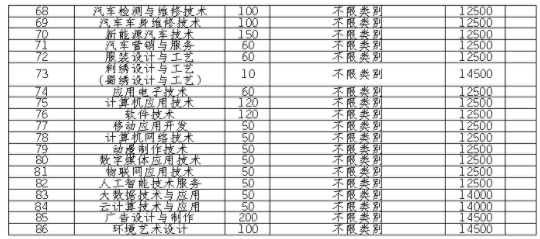 68 汽车检测与维修技术 100 不限类别 12500
69 汽车车身维修技术 100 不限类别 12500
70 新能源汽车技术 150 不限类别 12500
71 汽车营销与服务 60 不限类别 12500
72 服装设计与工艺 60 不限类别 12500
73 刺绣设计与工艺 10 不限类别 14500
（蜀绣设计与工艺）
74 应用电子技术 60 不限类别 12500
75 计算机应用技术 120 不限类别 12500
76 软件技术 120 不限类别 12500
77 移动应用开发 50 不限类别 12500
78 计算机网络技术 50 不限类别 12500
79 动漫制作技术 50 不限类别 12500
80 数字媒体应用技术 50 不限类别 12500
81 物联网应用技术 50 不限类别 12500
82 人工智能技术服务 50 不限类别 12500
83 大数据技术与应用 50 不限类别 14000
84 云计算技术与应用 50 不限类别 14000
85 广告设计与制作 200 不限类别 14500
86 环境艺术设计 100 不限类别 14500